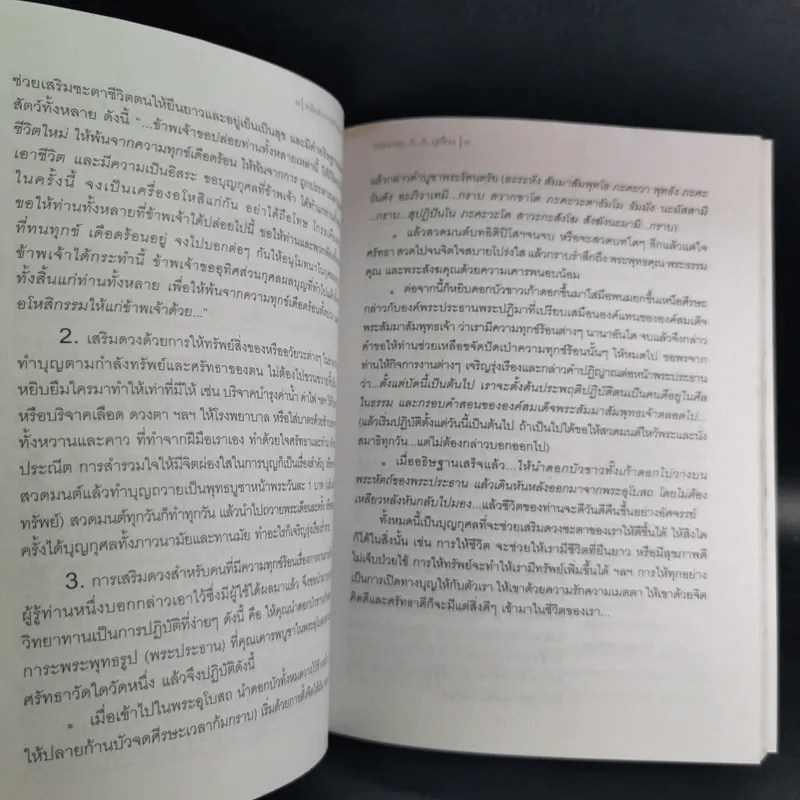 ช่วยเสริมชะตาชีวิตตนให้ยืนยาวและอยู่เย็นเป็นสุข และมีคำอธิษฐาน
สัตว์ทั้งหลาย ดังนี้ "...ข้าพเจ้าขอปล่อยท่านทั้งหลายเหล่านี้ ให้มี
ชีวิตใหม่ ให้พ้นจากความทุกข์เดือดร้อน ให้พ้นจากการ ถูกประหาร
เอาชีวิต และมีความเป็นอิสระ ขอบุญกุศลที่ข้าพเจ้า ได้ทำแก่ท่าน
ในครั้งนี้ จงเป็นเครื่องอโหสิแก่กัน อย่าได้ถือโทษ โกรธเคือง
ขอให้ท่านทั้งหลายที่ข้าพเจ้าได้ปล่อยไปนี้ ขอให้ท่านและพวกพ้อง
ที่ทนทุกข์ เดือดร้อนอยู่ จงไปบอกต่อๆ กันให้อนุโมทนาในกุศล
ข้าพเจ้าได้กระทำนี้ ข้าพเจ้าขออุทิศส่วนกุศลผลบุญที่ทำไปแล้ว
ทั้งสิ้นแก่ท่านทั้งหลาย เพื่อให้พ้นจากความทุกข์เดือดร้อนทั้งปวง
อโหสิกรรมให้แก่ข้าพเจ้าด้วย..."
2. เสริมดวงด้วยการให้ทรัพย์สิ่งของหรืออวัยวะต่างๆ
ทำบุญตามกำลังทรัพย์และศรัทธาของตน ไม่ต้องไปขวนขวาย
หยิบยืมใครมาทำให้เท่าที่มีให้ เช่น บริจาคบำรุงค่าน้ำ ค่าไฟ ฯลฯ ให้วัด
หรือบริจาคเลือด ดวงตา ฯลฯ ให้โรงพยาบาล หรือใส่บาตรด้วยข้าว
ทั้งหวานและคาว ที่ทำจากฝีมือเราเอง ทำด้วยใจศรัทธาและ
ประณีต การสำรวมใจให้มีจิตผ่องใสในการบุญก็เป็นเรื่องสำคัญ หรือ
สวดมนต์แล้วทำบุญถวายเป็นพุทธบูชาหน้าพระวันละ 1 บาท
ทรัพย์) สวดมนต์ทุกวันก็ทำทุกวัน แล้วนำไปถวายพระเดือนละครั้ง
ครั้งได้บุญกุศลทั้งภาวนามัยและทานมัย ทำอะไรก็เจริญรุ่งเรือง
3. การเสริมดวงสำหรับคนที่มีความทุกข์ร้อนเรื่องการงาน
ผู้รู้ท่านหนึ่งบอกกล่าวเอาไว้ซึ่งมีผู้ใช้ได้ผลมาแล้ว จึงขอนำมา
วิทยาทานเป็นการปฏิบัติที่ง่ายๆ ดังนี้ คือ ให้คุณนำดอกบัวขาว
การะพระพุทธรูป (พระประธาน) ที่คุณเคารพบูชาในพระอุโบสถ
ศรัทธาวัดใดวัดหนึ่ง แล้วจึงปฏิบัติดังนี้
เมื่อเข้าไปในพระอุโบสถ นำดอกบัวทั้งหมดวางไว้ที่
ให้ปลายก้านบัวจดศีรษะเวลาก้มกราบ) เริ่มด้วยการตั้งจิต
แล้วกล่าวคำบูชาพระรัตนตรัย (อะระหัง สัมมาสัมพุทโธ ภะคะวา พุทธัง ภะคะ
วันตัง อะภิวาเทมิ...กราบ สวากขาโต ภะคะวะตาธัมโม ธัมมัง นะมัสสามิ
...กราบ...สุปฏิปันโน ภะคะวะโต สาวะกะสังโฆ สังฆังนะมามิ...กราบ)
แล้วสวดมนต์บทอิติปิโสฯจนจบ หรือจะสวดบทใดๆ อีกแล้วแต่ใจ
ศรัทธา สวดไปจนจิตใจสบายโปร่งใส แล้วกราบรำลึกถึง พระพุทธคุณ พระธรรม
คุณ และพระสังฆคุณด้วยความเคารพนอบน้อม
ต่อจากนี้ก็หยิบดอกบัวขาวเก้าดอกขึ้นมาใส่มือพนมยกขึ้นเหนือศีรษะ
กล่าวกับองค์พระประธานพระปฏิมาที่เปรียบเสมือนองค์แทนขององค์สมเด็จ
พระสัมมาสัมพุทธเจ้า ว่าเรามีความทุกข์ร้อนต่างๆ นานาอันใด จบแล้วจึงกล่าว
คำขอให้ท่านช่วยเหลือขจัดปัดเป่าความทุกข์ร้อนนั้นๆ ให้หมดไป ขอพรจาก
ท่านให้กิจการงานต่างๆ เจริญรุ่งเรืองและกล่าวคำปฏิญาณต่อหน้าพระประธาน
ว่า...ตั้งแต่บัดนี้เป็นต้นไป เราจะตั้งต้นประพฤติปฏิบัติตนเป็นคนดีอยู่ในศีล
ในธรรม และกรอบคำสอนขององค์สมเด็จพระสัมมาสัมพุทธเจ้าตลอดไป...
(แล้วเริ่มปฏิบัติตั้งแต่วันนี้เป็นต้นไป ถ้าเป็นไปได้ขอให้สวดมนต์ไหว้พระและนั่ง
สมาธิทุกวัน...แต่ไม่ต้องกล่าวบอกออกไป)
เมื่ออธิษฐานเสร็จแล้ว...ให้นำดอกบัวขาวทั้งเก้าดอกไปวางบน
พระหัตถ์ของพระประธาน แล้วเดินหันหลังออกมาจากพระอุโบสถ โดยไม่ต้อง
เหลียวหลังหันกลับไปมอง...แล้วชีวิตของท่านจะดีวันดีคืนขึ้นอย่างอัศจรรย์
ทั้งหมดนี้เป็นบุญกุศลที่จะช่วยเสริมดวงชะตาของเราให้ดีขึ้นได้ ให้สิ่งใด
ก็ได้ในสิ่งนั้น เช่น การให้ชีวิต จะช่วยให้เรามีชีวิตที่ยืนยาว หรือมีสุขภาพดี
ไม่เจ็บป่วยไข้ การให้ทรัพย์จะทำให้เรามีทรัพย์เพิ่มขึ้นได้ ฯลฯ การให้ทุกอย่าง
เป็นการเปิดทางบุญให้กับตัวเรา ให้เขาด้วยความรักความเมตตา ให้เขาด้วยจิต
คิดดีและศรัทธาดีก็จะมีแต่สิ่งดีๆ เข้ามาในชีวิตของเรา...